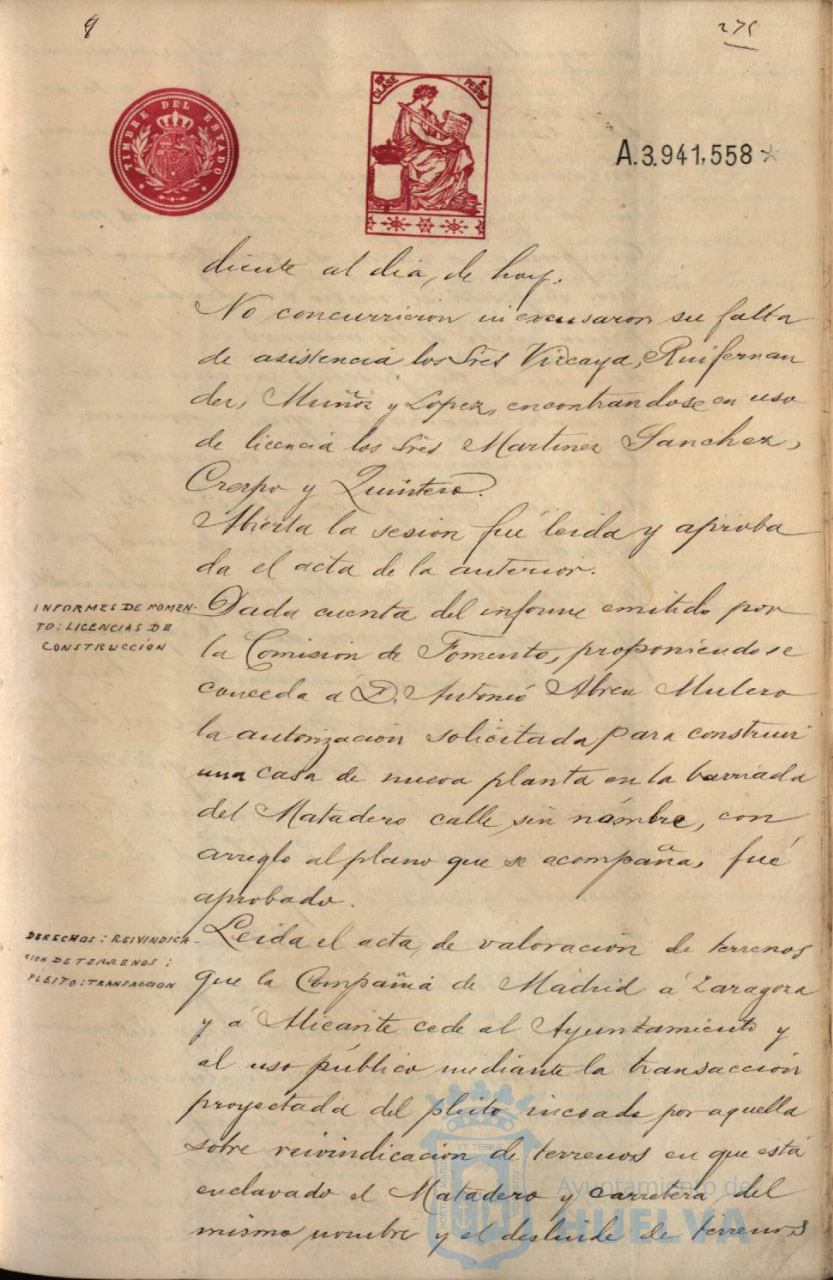 9
275
TIMBRE DEL ESTADO
CLASE
PESETAS
A.3.941,558*
diente al dia, de hoy.
No concurrieron ni excusaron su falta
de asistencia los Sres Vizcaya, Ruifernan
dez, Muñoz y Lopez, encontrandose en uso
de licencia los Sres Martinez Sanchez,
Crespo y Quintero.
Abierta la sesion fué leida y aproba
da el acta de la anterior.
INFORMES DE FOMEN-
TO: LICENCIAS DE
CONSTRUCCIÓN
Dada cuenta del informe emitido por
la Comision de Fomento, proponiendo se
conceda á D. Antonio Abreu Mulero
la autorización solicitada para construir
una casa de nueva planta en la barriada
del Matadero calle sin nombre, con
arreglo al plano que se acompaña, fué
aprobado.
DERECHOS: REIVINDICA-
CION DE TERRENOS:
PLEITO: TRANSACCION
Leida el acta, de valoración de terrenos
que la Compañia de Madrid á Zaragoza
y á Alicante cede al Ayuntamiento y
al uso público mediante la transacción
proyectada del pleito incoado por aquella
sobre reivindicación de terrenos en que está
enclavado el Matadero y carretera del
mismo nombre y el deslinde de terrenos
Ayuntamiento de
HUELVA